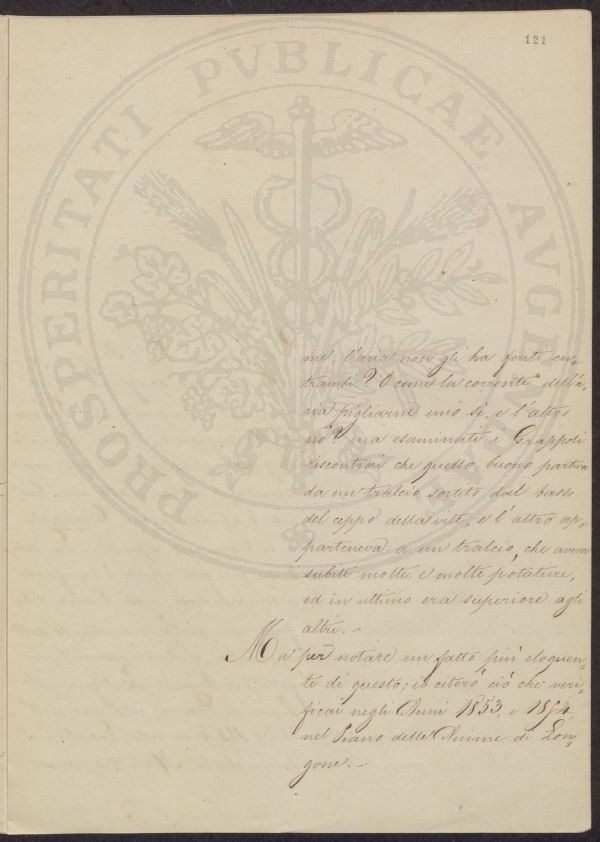 121
PROSPERITATI PVBLICAE AVGENDAE
me, l'aria non gli ha feriti en-
trambi? O come la corrente dell'a-
ria pigliarne uno sì, e l'altro
nò? ma esaminati i Grappoli
riscontrai che quello buono partiva
da un tralcio sortito dal basso
del ceppo della vite, e l'altro ap-
parteneva a un tralcio, che aveva
subite molte, e molte potature,
ed in ultimo era superiore agli
altri. -
Ma per notare un fatto più eloquen-
te di questo; io citerò ciò che veri-
ficai negli Anni 1853, e 1854
nel Piano delle Anime di Lon-
gone. -